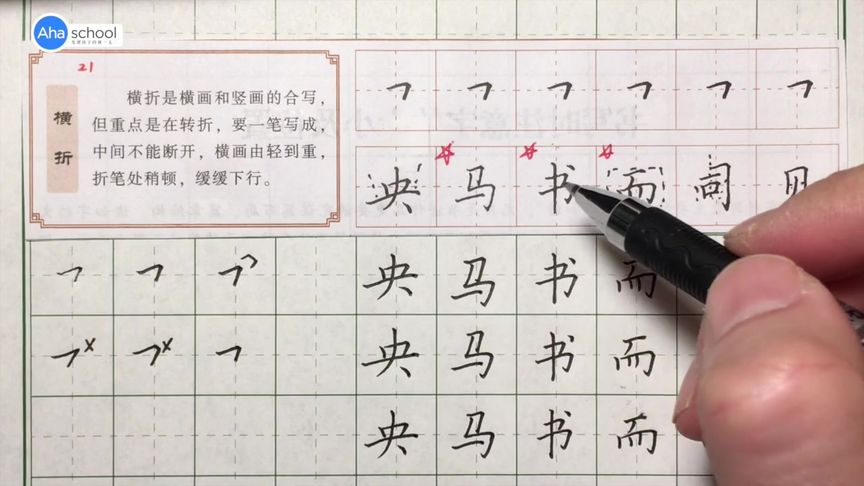 Aha school
21
横折
横折是横画和竖画的合写，
但重点是在转折，要一笔写成，
中间不能断开，横画由轻到重，
折笔处稍顿，缓缓下行。
㇕ ㇕ ㇕ ㇕ ㇕ ㇕
央 马 书 而 同
㇕ ㇕ ㇕
央 马 书 而
㇕x ㇕x ㇕
央 马 书 而
央 马 书 而